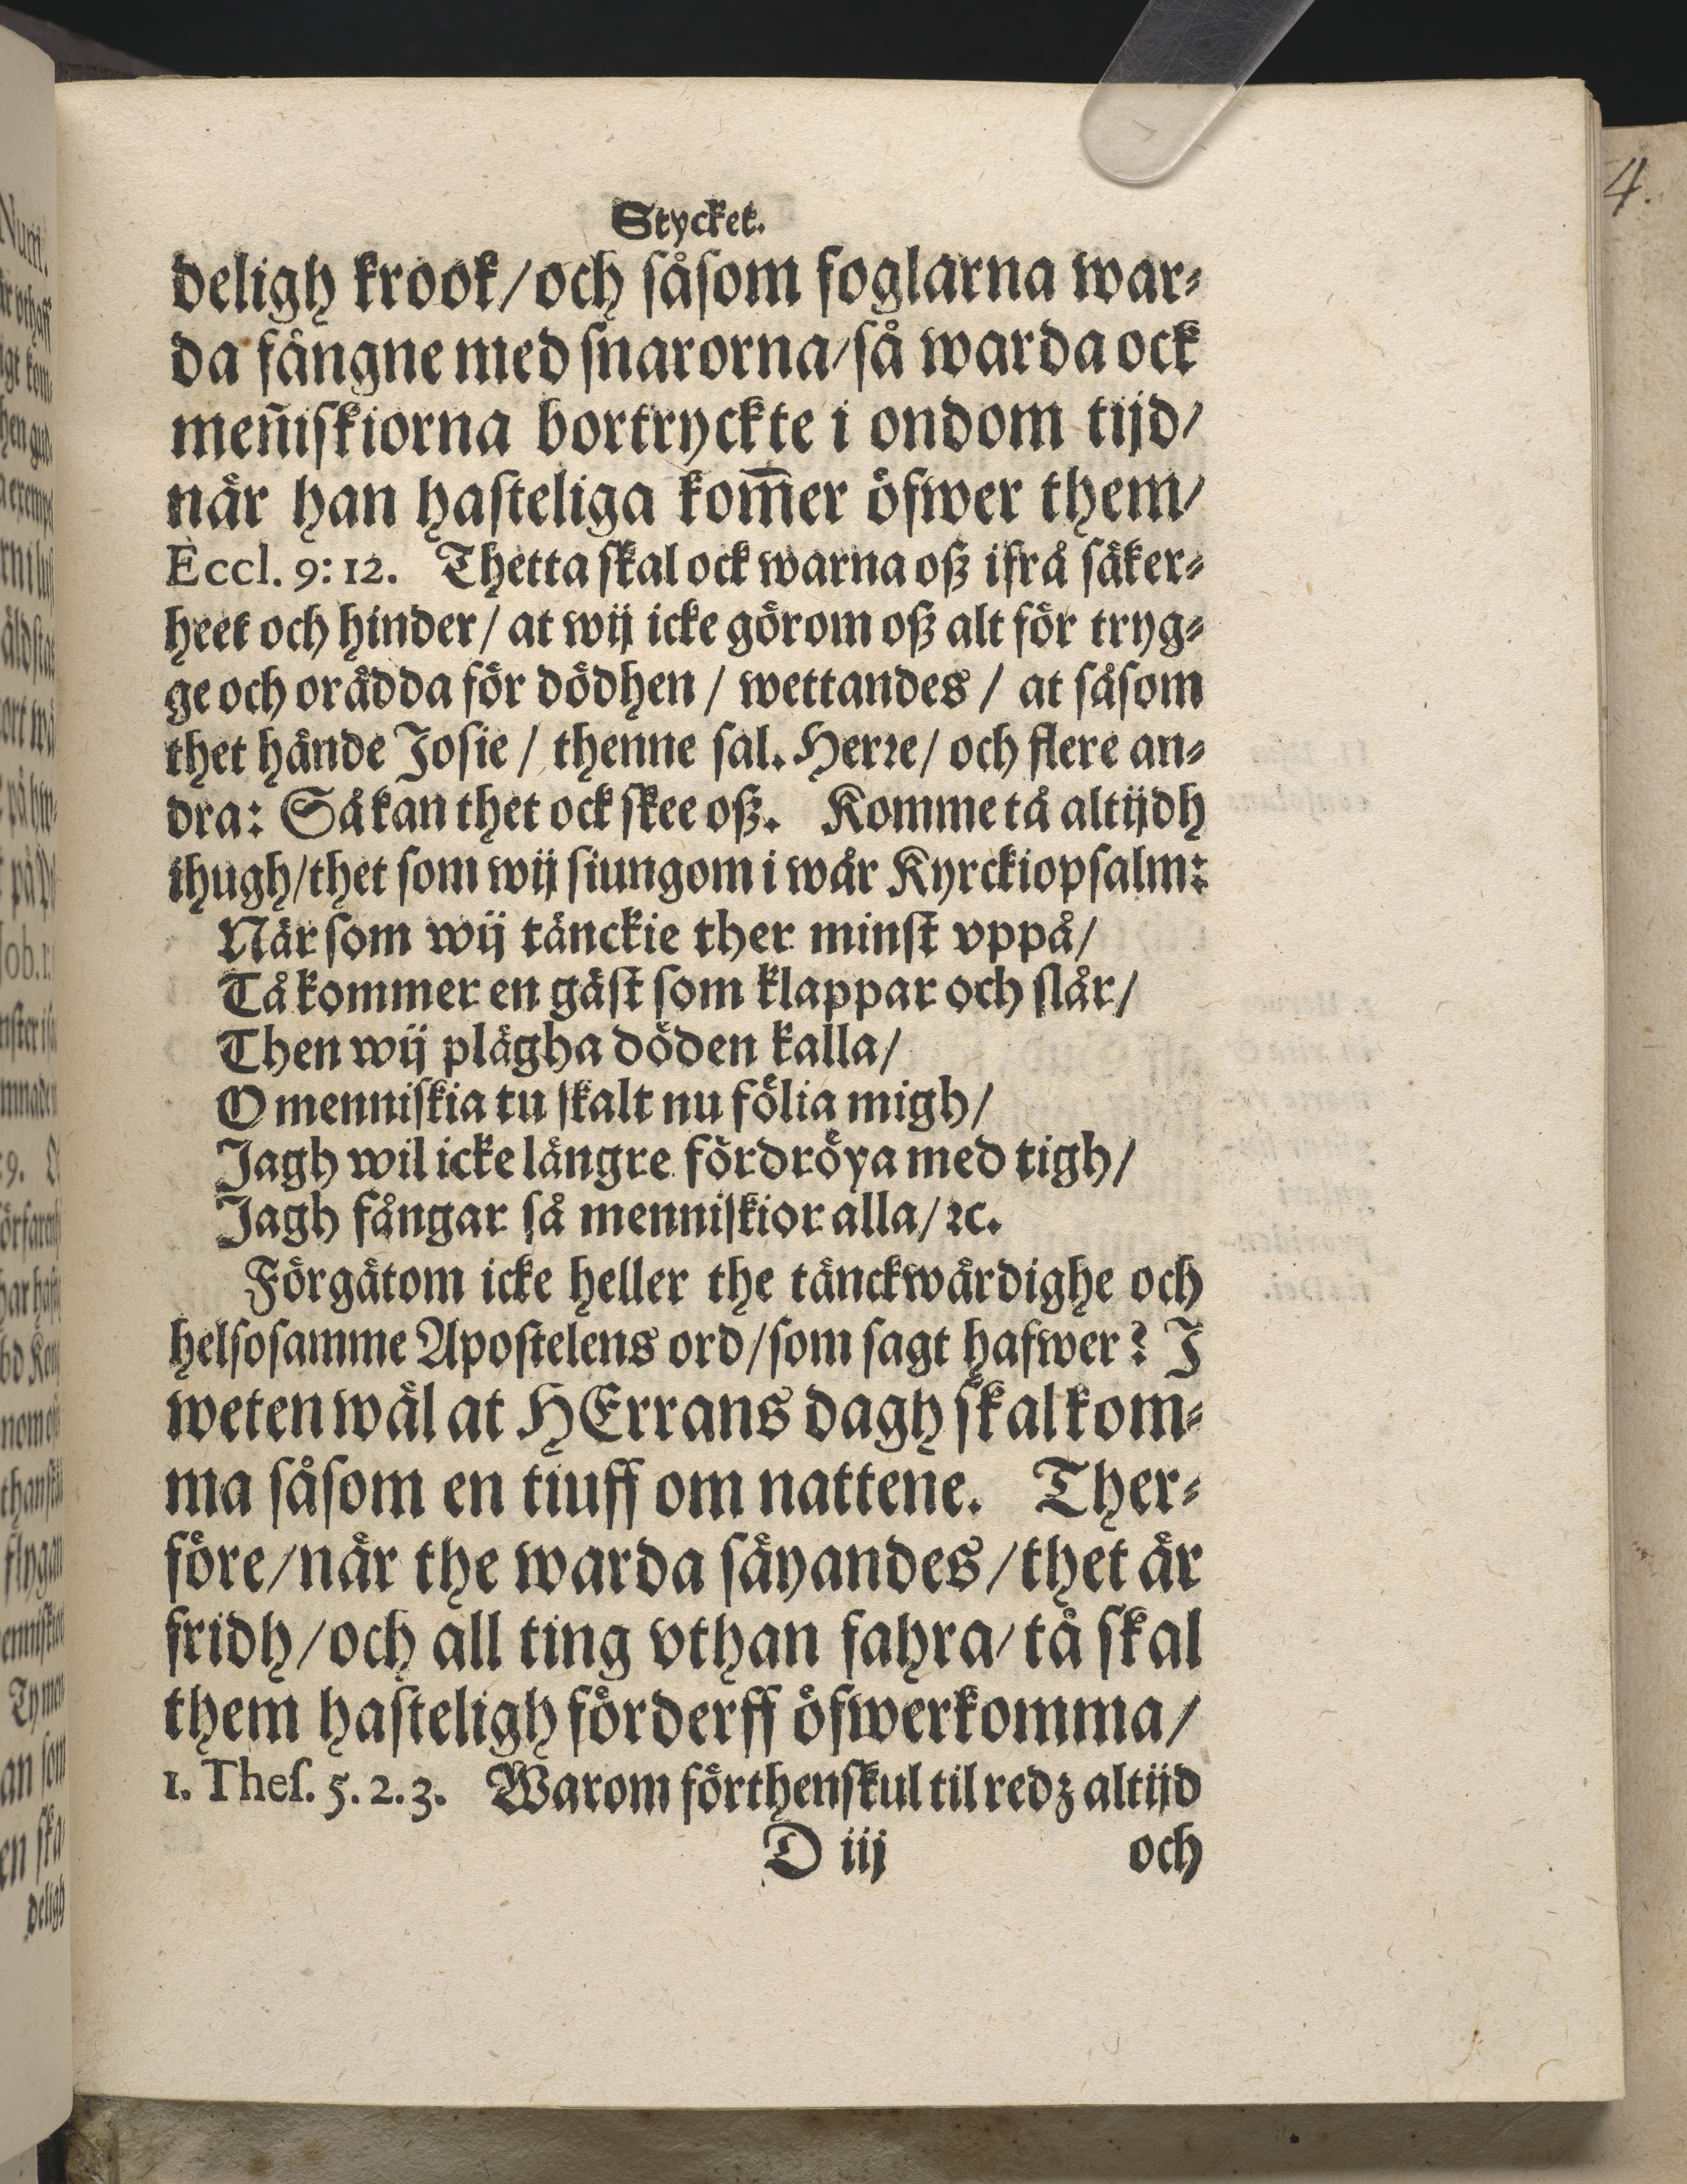 Stycket.
deligh krook/och såsom foglarna war⸗
da fångne med snarorna/så warda ock
meñiskiorna bortryckte i ondom tijd/
når han hasteliga kom̃er öfwer them/
Eccl. 9: 12. Thetta skal ock warna oß ifrå såker⸗
heet och hinder/ at wij icke görom oß alt för tryg⸗
ge och orådda för dödhen / wettandes / at såsom
thet hånde Josie / thenne sal. Herꝛe/ och flere an⸗
dra: Så kan thet ock skee oß. Komme tå altijdh
ihugh/thet som wij siungom i wår Kyrckiopsalm:
Når som wij tånckie ther minst vppå/
Tå kommer en gåst som klappar och slår/
Then wij plågha döden kalla/
O menniskia tu skalt nu fölia migh/
Jagh wil icke långre fördröya med tigh/
Jagh fångar så menniskior alla/ꝛc.
Förgåtom icke heller the tånckwårdighe och
helsosamme Apostelens ord/som sagt hafwer? J
weten wål at HErrans dagh skal kom⸗
ma såsom en tiuff om nattene. Ther⸗
före/når the warda såyandes/thet år
fridh/och all ting vthan fahra/tå skal
them hasteligh förderff öfwerkomma/
1. Thes. 5. 2. 3. Warom förthenskul til redz altijd
D iij och
4.